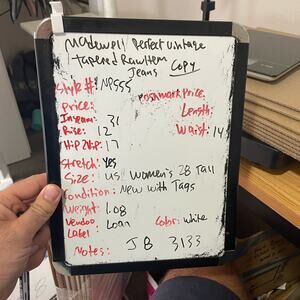 Madewell Perfect Vintage
Tapered Raw Hem
Jeans Copy
Style #: NP555
Poshmark Price
Price:
Length:
Inseam: 31
Waist: 14
Rise: 12
Hip 2 Hip: 17
Stretch: Yes
Size: US Women's 28 Tall
Condition: New with Tags
Weight: 1.08
Color: White
Vendoo Label: Loan
Notes: JB 3133